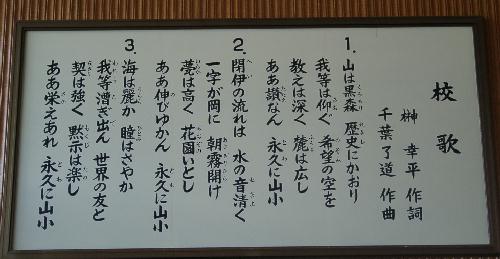 校歌
榊 幸平 作詞
千葉 了道 作曲
1. 山は黒森 歴史にかおり
我等は仰ぐ 希望の空を
教えは深く 麓は広し
ああ讃なん 永久に山小
2. 閉伊の流れは 水の音清く
一字が岡に 朝霧開け
甍は高く 花園いとし
ああ伸びゆかん 永久に山小
3. 海は麗か 瞳はさやか
我等漕ぎ出ん 世界の友と
契は強く 黙示は楽し
ああ栄えあれ 永久に山小